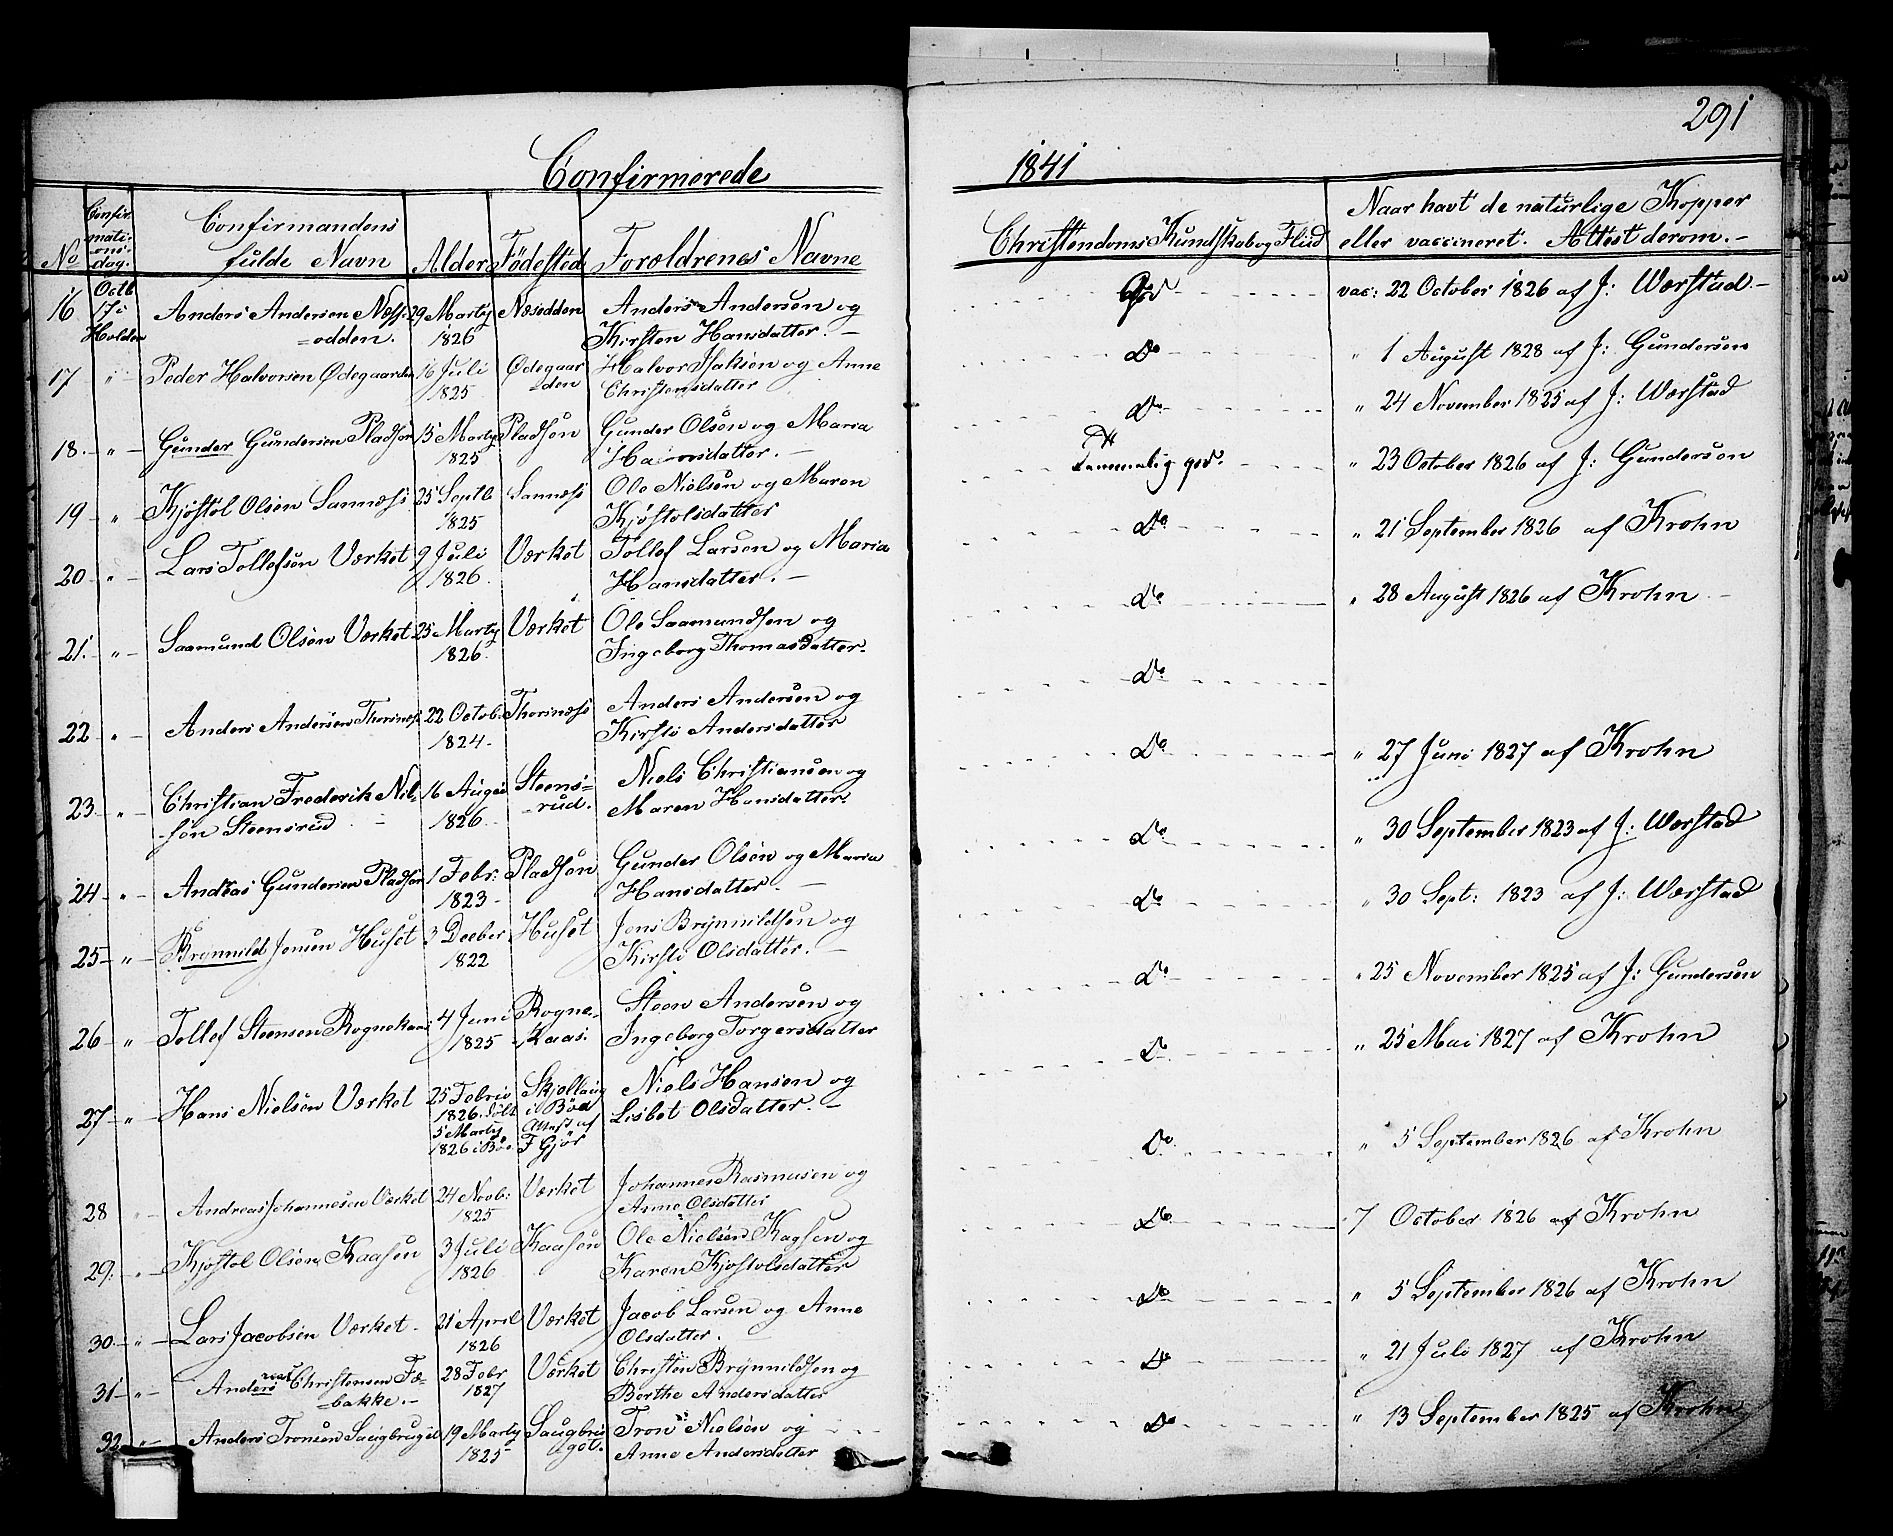 291
Confirmerede
1841
No
Confir-
mati-
ons-
dag.
Confirmandens
fulde Navn
Alder
Fødested
Forældrenes Navne
Christendoms Kundskab og Flid
Naar havt de naturlige Kopper
eller vaccineret. Attest derom.
16 Octb. Anders Andersen Næss- 29 Marty Næsodden Anders Andersen og
17 i Holden odden. 1826 Kirsten Hansdatter.
God vac: 22 October 1826 af J: Wærstad
17 " Peder Halvorsen Ødegaarden 16 Juli Ødegaar Halvor Isaksen og Anne
1825 den Christensdatter
do " 1 August 1828 af J: Gundersen
18. " Gunder Gundersen Pladsen 15 Marty Pladsen Gunder Olsen og Maria
1825 Hansdatter.
do " 24 November 1825 af J: Wærstad
19 " Kjøstol Olsen Sannæss 25 Septb Sannæss Ole Nielsen og Maren
1825 Kjøstolsdatter
temmelig god. " 23 October 1826 af J: Gundersen
20 " Lars Tollefsen Værket 9 Juli Værket Tollef Larsen og Maria
1826 Hansdatter.
do " 21 September 1826 af Krohn
21. " Saamund Olsen Værket 25 Marty Værket Ole Saamundsen og
1826. Ingeborg Thomasdatter.
do " 28 August 1826 af Krohn
22 " Anders Andersen Thorsnæs 22 Octob. Thorsnæss Anders Andersen og
1824. Kirste Andersdatter
do
23. " Christian Frederik Nil- 16 August Steens= Niels Christiansen og
sen Steensrud 1826. rud. Maren Hansdatter.
do " 27 Juni 1827 af Krohn
24 " Andreas Gundersen Pladsen 1 Febr: Pladsen Gunder Olsen og Maria
1823 Hansdatter.
do " 30 September 1823 af J: Wærstad
25 " Brynnild Jensen Huset 3 Decber Huset Jens Brynnildsen og
1822 Kirste Olsdatter.
do " 30 Sept: 1823 af J: Wærstad
26 " Tollef Steensen Rognekaas 4 Juni Rogne- Steen Andersen og
1825 kaas. Ingeborg Torgersdatter
do " 25 November 1825 af J: Gundersen
27 " Hans Nielsen Værket 25 Febr Niels Hansen og
1826. døbt i Bøe Lisbet Olsdatter.
5 Marty Attest af
1826 i Bøe. F Gjør
do " 25 Mai 1827 af Krohn
28 " Andreas Johannesen Værket 24 Novb: Værket Johannes Rasmusen og
1825 Anne Olsdatter
do " 5 September 1826 af Krohn
29. " Kjøstol Olsen Kaasen 3 Juli Kaasen Ole Nielsen og
1826 Karen Kjøstolsdatter
do 7 October 1826 af Krohn
30. " Lars Jacobsen Værket 21 April Værket Jacob Larsen og Anne
1826 Olsdatter.
do " 5 September 1826 af Krohn
31 " Anders Christensen Fæ= 28 Febr Værket Christen Brynnildsen og
bakke. 1827 Berthe Andersdatter
do " 21 Juli 1827 af Krohn
32 " Anders Tronsen Saugbruget 19 Marty Saugbru Tron Nielsen og
1825 get. Anne Andersdatter
do " 13 September 1825 af Krohn